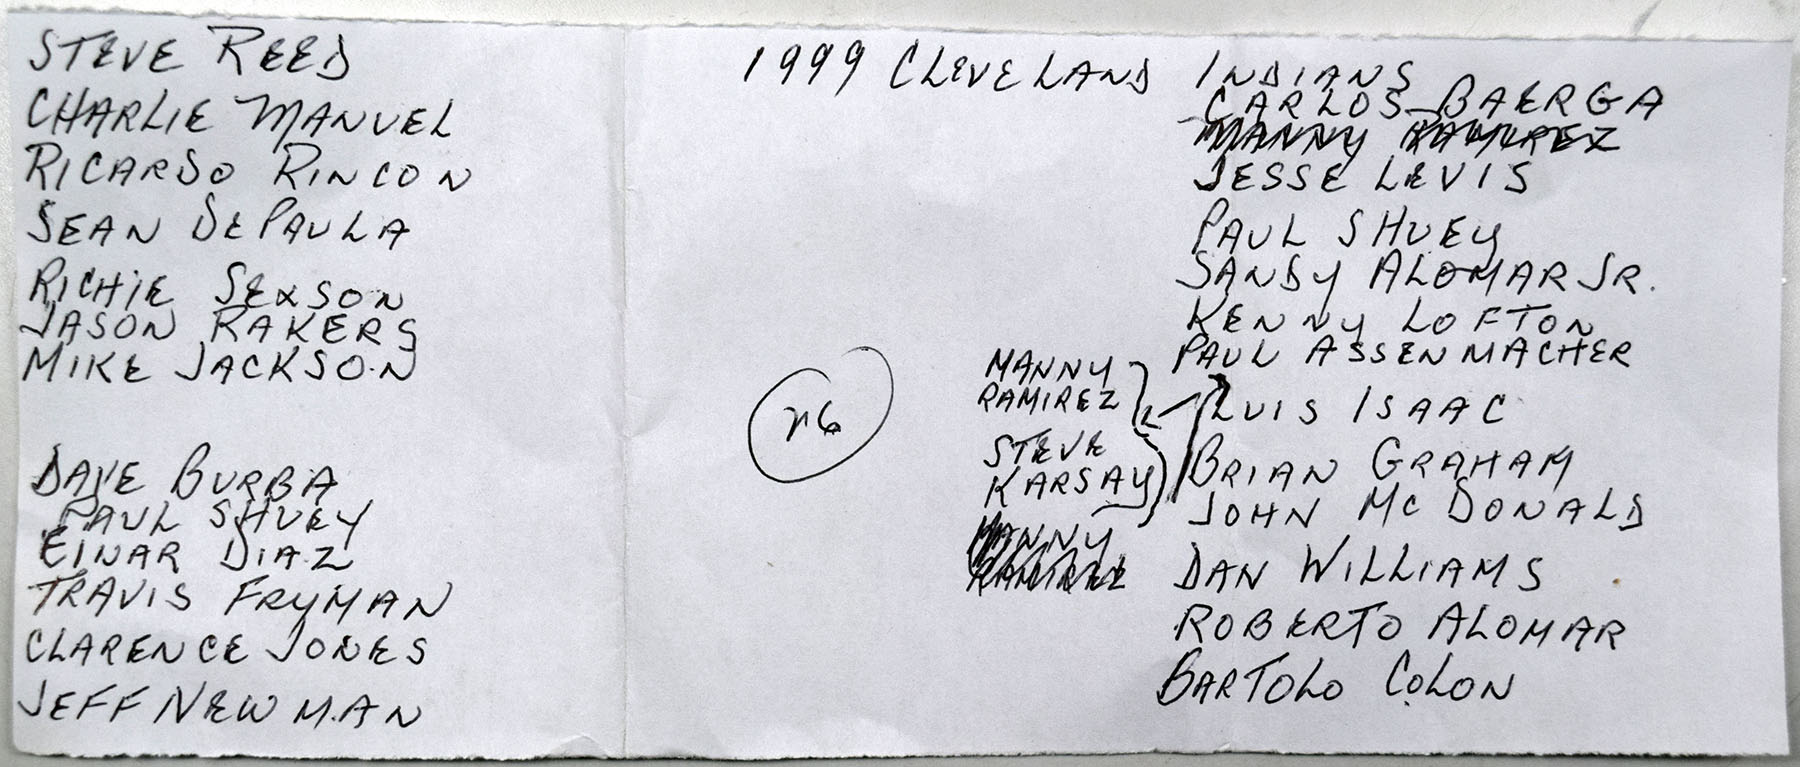 STEVE REED
CHARLIE MANUEL
RICARDO RINCON
SEAN DEPAULA
RICHIE SEXSON
JASON RAKERS
MIKE JACKSON
DAVE BURBA
PAUL SHUEY
EINAR DIAZ
TRAVIS FRYMAN
CLARENCE JONES
JEFF NEWMAN
1999 CLEVELAND INDIANS
CARLOS BAERGA
MANNY RAMIREZ
JESSE LEVIS
PAUL SHUEY
SANDY ALOMAR JR.
KENNY LOFTON
PAUL ASSENMACHER
MANNY
RAMIREZ
STEVE
KARSAY
MANNY
RAMIREZ
LUIS ISAAC
BRIAN GRAHAM
JOHN MCDONALD
DAN WILLIAMS
ROBERTO ALOMAR
BARTOLO COLON